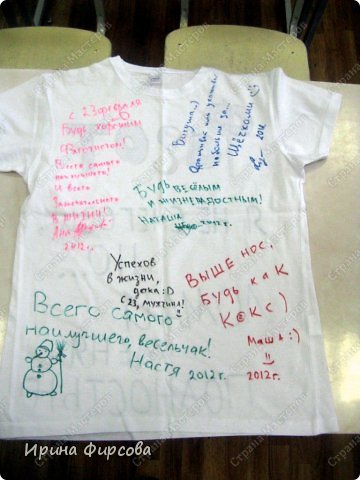 с 23 февраля
Будь хорошим
Всего самого
наилучшего!
И всего
Замечательного
в жизни!
Аня
2012 г.
2012
Щёчками
Будь весёлым
и жизнерадостным!
Наташа 2012 г.
Успехов
в жизни,
детка :D
С 23, мужчина!
Выше нос,
Будь как
Кекс)
Маша :)
2012 г.
Всего самого
наилучшего, весельчак!
Настя 2012 г.
Ирина Фирсова